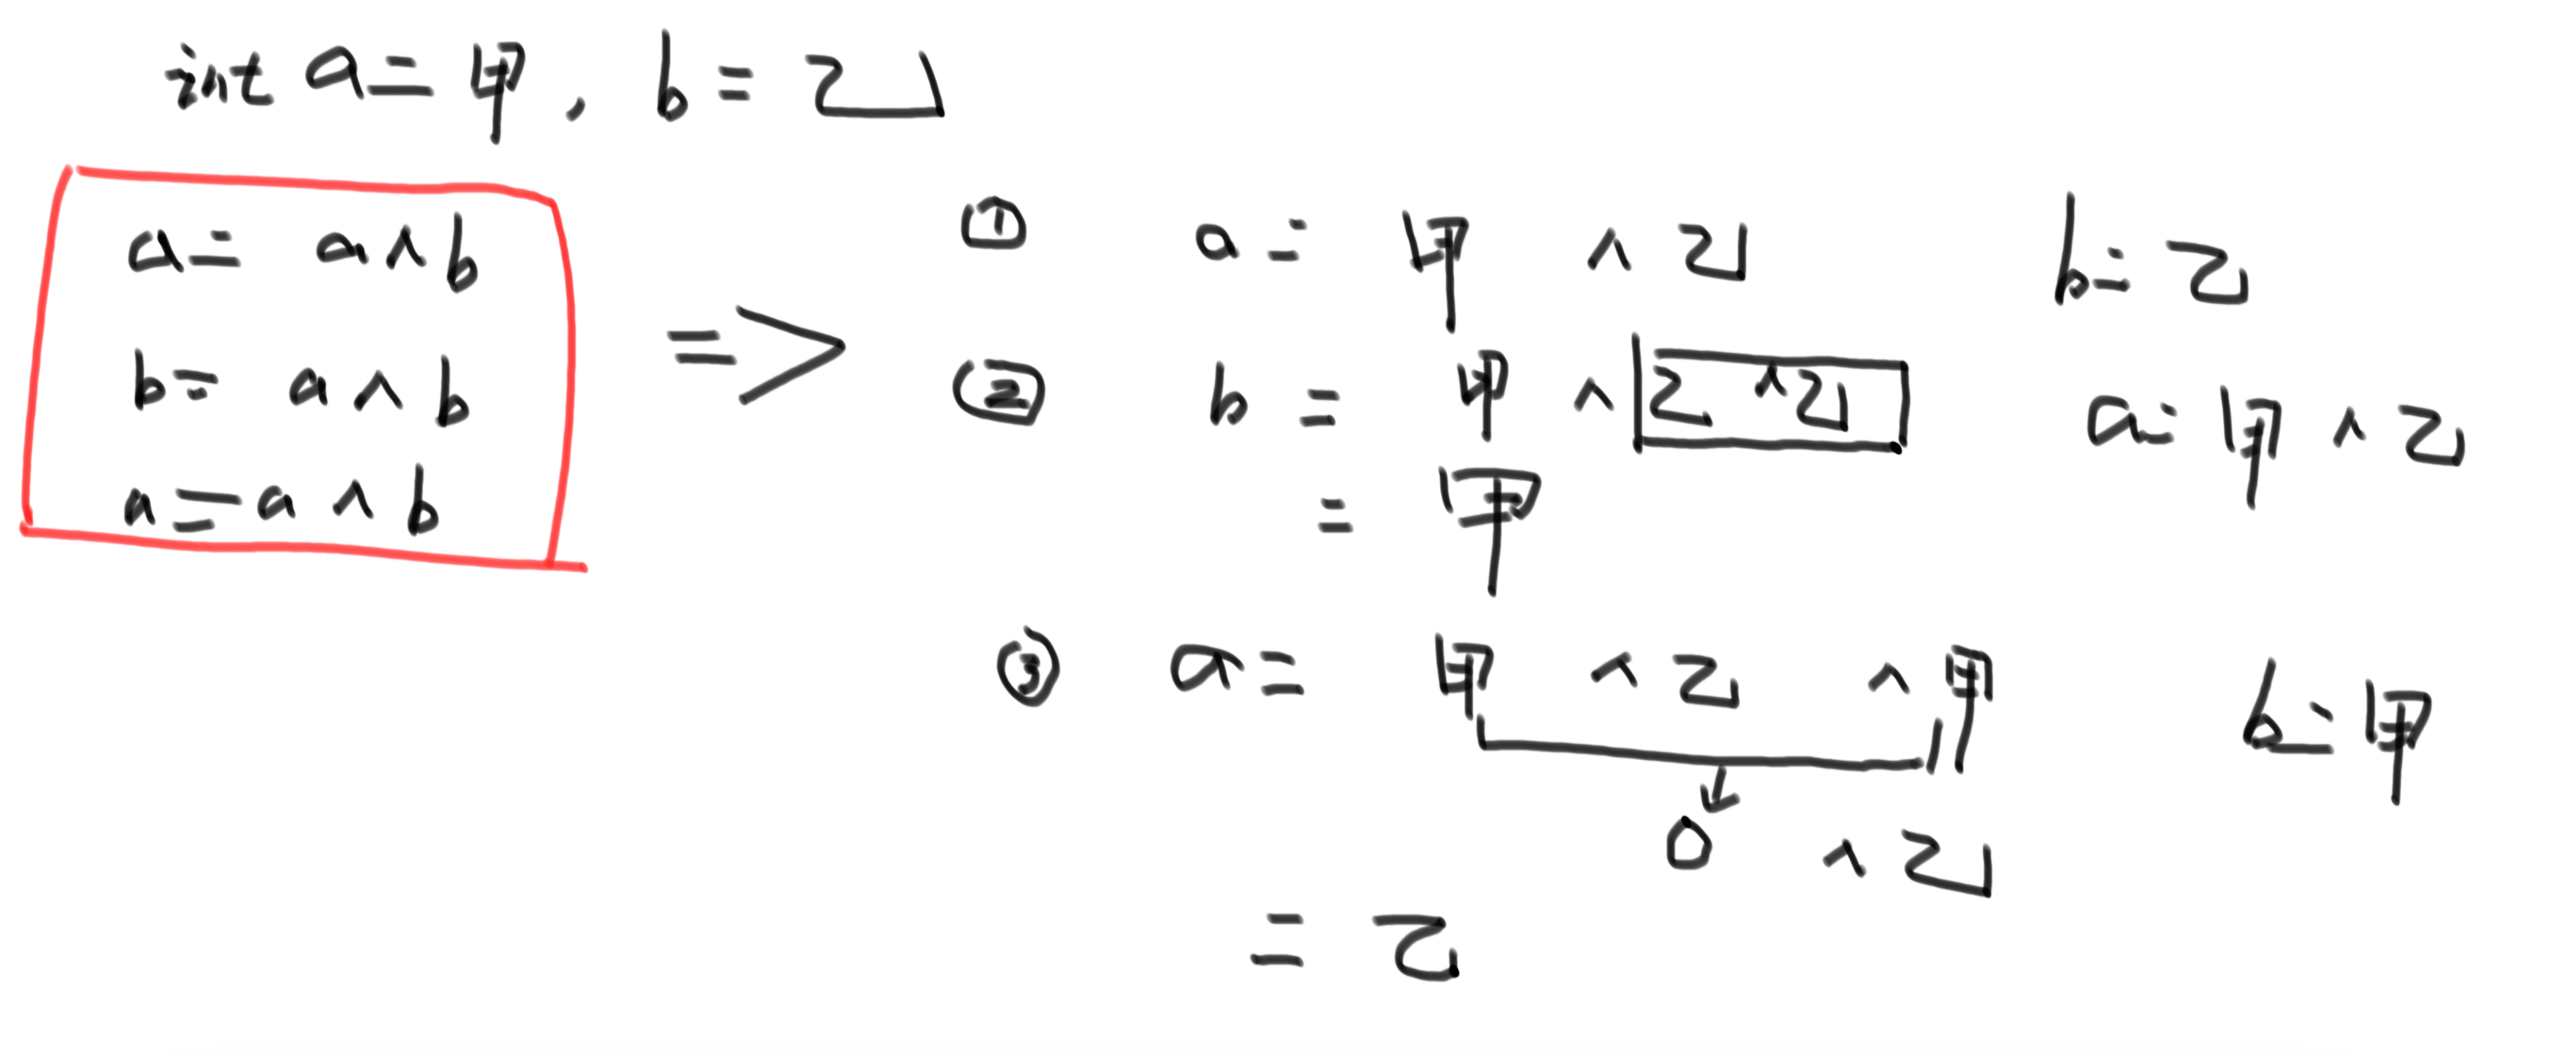 int a = 甲, b = 乙
a = a ^ b
b = a ^ b
a = a ^ b
=>
① a = 甲 ^ 乙 b = 乙
② b = 甲 ^ 乙 ^ 乙 a = 甲 ^ 乙
= 甲
③ a = 甲 ^ 乙 ^ 甲 b = 甲
0 ^ 乙
= 乙